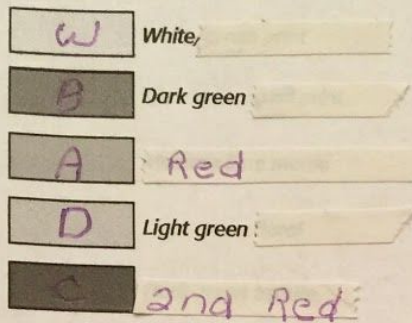 W White,
B Dark green
A Red
D Light green
C 2nd Red